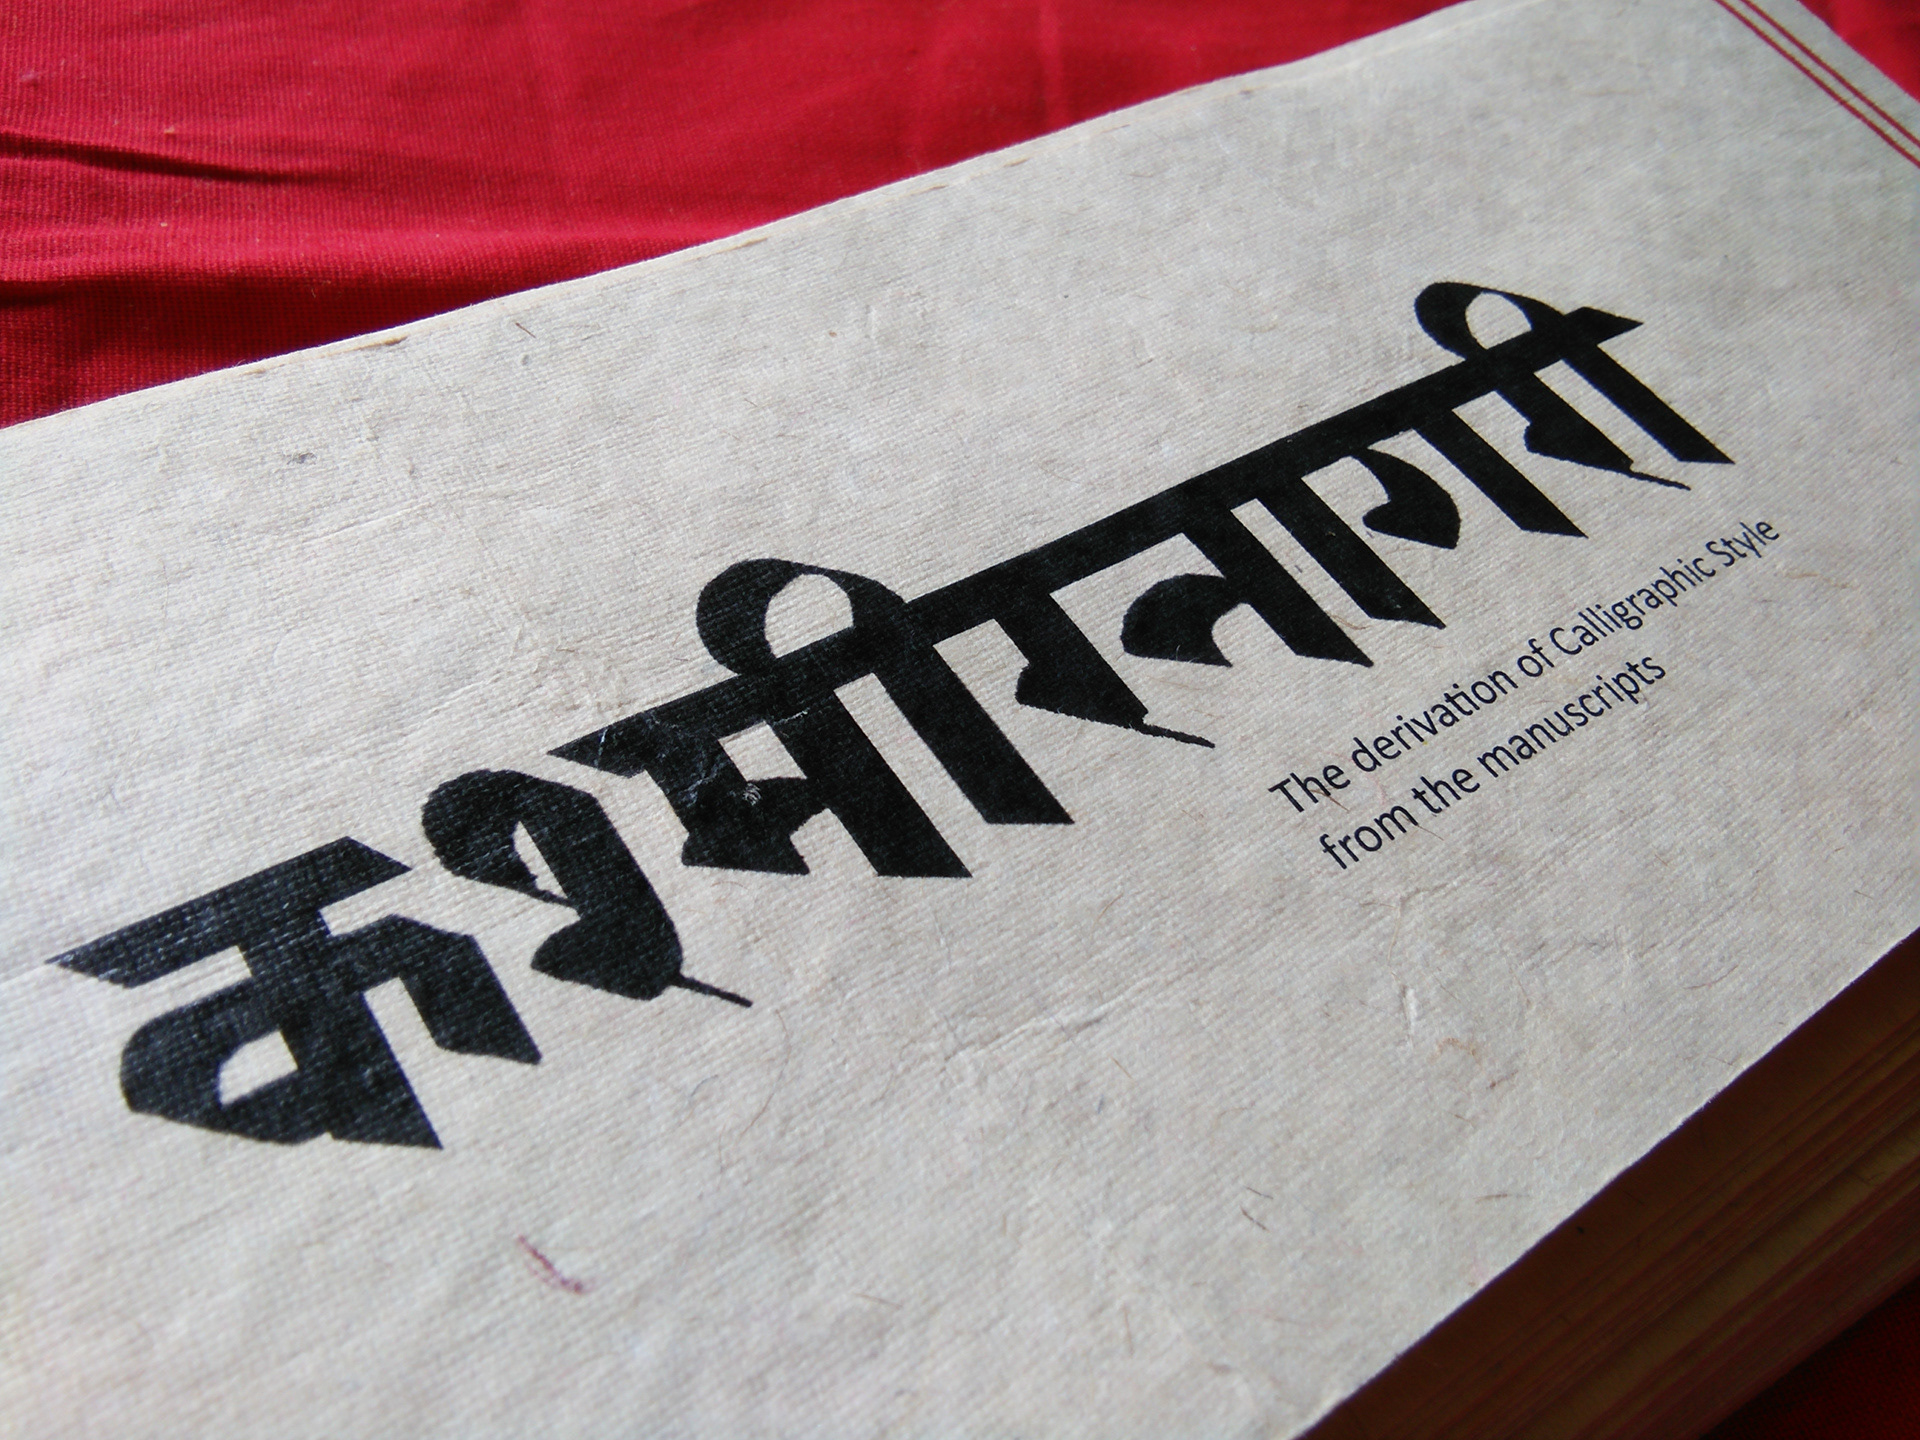 कश्मीरनागरी
The derivation of Calligraphic Style
from the manuscripts